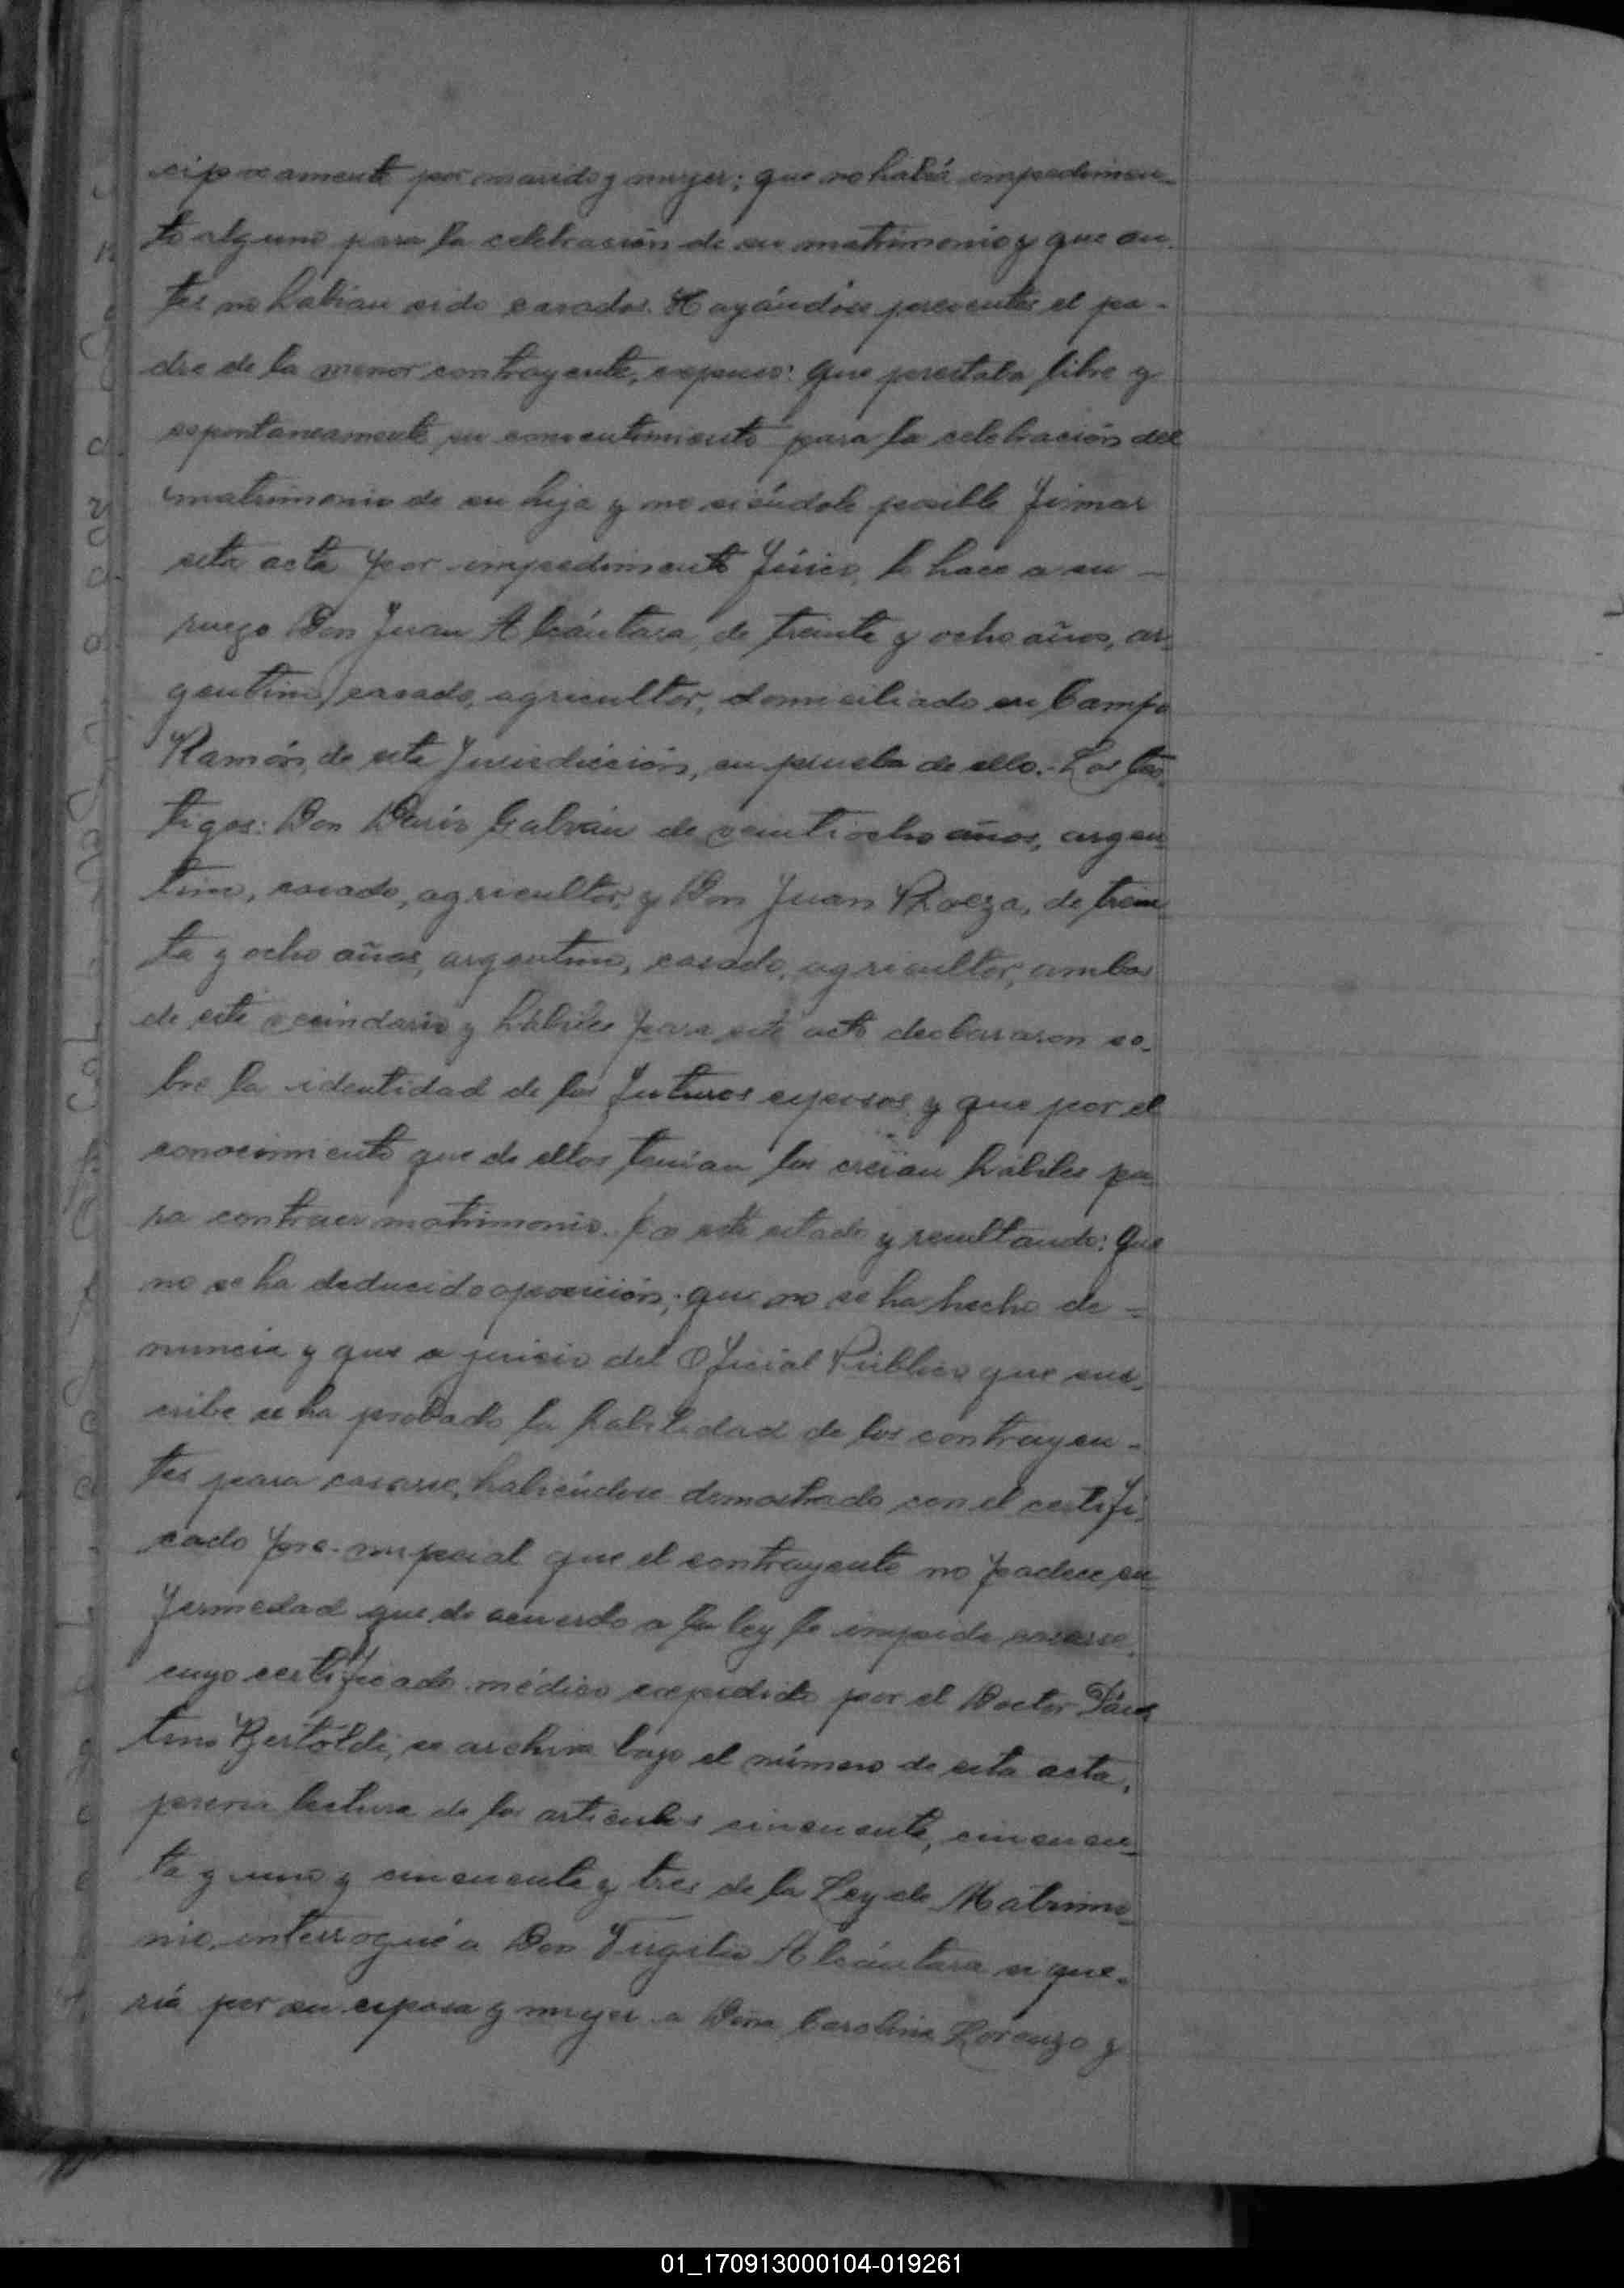 ciprocamente por marido y mujer; que no había impedimen-
to alguno para la celebración de su matrimonio y que an-
tes no habían sido casados. Hayándose presentes el pa-
dre de la menor contrayente, expuso: Que prestaba libre y
espontaneamente su consentimiento para la celebración del
matrimonio de su hija y no siéndole posible firmar
esta acta por impedimento físico, lo hace a su
ruego Don Juan Alcántara, de treinta y ocho años, ar-
gentino, casado, agricultor, domiciliado en Campo
Ramón, de esta Jurisdicción, en prueba de ello.- Los tes-
tigos: Don Darío Galván de veintiocho años, argen-
tino, casado, agricultor, y Don Juan de trein-
ta y ocho años, argentino, casado, agricultor, ambos
de este vecindario y hábiles para este acto declararon so-
bre la identidad de los futuros esposos y que por el
conocimiento que de ellos tenían los creían hábiles pa-
ra contraer matrimonio. En este estado y resultando: Que
no se ha deducido oposición; que no se ha hecho de-
nuncia y que a juicio del Oficial Público que sus-
cribe se ha probado la habilidad de los contrayen-
tes para casarse, habiéndose demostrado con el certifi-
cado pre-nupcial que el contrayente no padece en-
fermedad que de acuerdo a la ley le impida casarse,
cuyo certificado médico expedido por el Doctor
Bertoldi, se archiva bajo el número de esta acta,
previa lectura de los artículos cincuenta, cincuen-
ta y uno y cincuenta y tres de la Ley de Matrimo-
nio, interrogué a Don Virgilio Alcántara si que-
ría por su esposa y mujer a Doña Carolina Lorenzo y
01_170913000104-019261